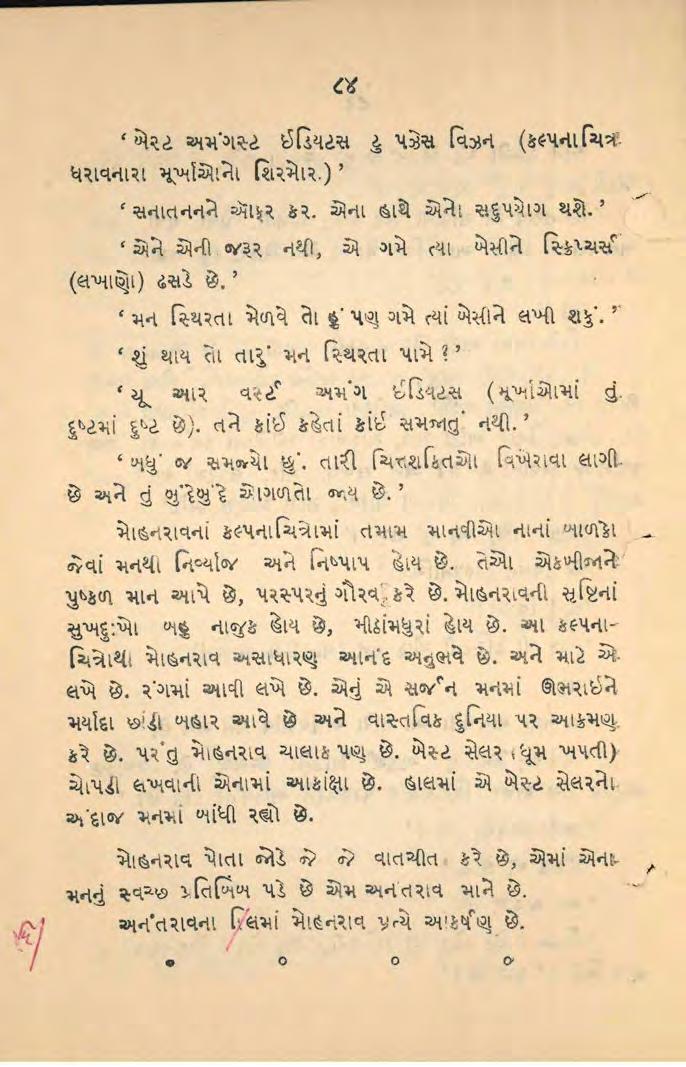 ૮૪
‘ બેસ્ટ અમંગસ્ટ ઈડિયટસ ટુ પઝેસ વિઝન (કલ્પનાચિત્ર
ધરાવનારા મૂર્ખાઓનો શિરમોર.) ’
‘ સનાતનનને ઑફર કર. એના હાથે એનો સદુપયોગ થશે. ’
‘ એને એની જરૂર નથી, એ ગમે ત્યા બેસીને સ્ક્રિપ્ચર્સ
(લખાણો) ઢસડે છે. ’
‘ મન સ્થિરતા મેળવે તો હું પણ ગમે ત્યાં બેસીને લખી શકું. ’
‘ શું થાય તો તારું મન સ્થિરતા પામે ? ’
‘ યૂ આર વર્સ્ટ અમંગ ઈડિયટસ (મૂર્ખાઓમાં તું
દુષ્ટમાં દુષ્ટ છે). તને કાંઈ કહેતાં કાંઈ સમજાતું નથી. ’
‘ બધું જ સમજ્યો છું. તારી ચિત્તશકિતઓ વિખેરાવા લાગી
છે અને તું બુંદેબુંદે ઓગળતો જાય છે. ’
મોહનરાવનાં કલ્પનાચિત્રોમાં તમામ માનવીઓ નાનાં બાળકો
જેવાં મનથી નિર્વ્યાજ અને નિષ્પાપ હોય છે. તેઓ એકબીજાને
પુષ્કળ માન આપે છે, પરસ્પરનું ગૌરવ કરે છે. મોહનરાવની સૃષ્ટિનાં
સુખદુ:ખો બહુ નાજુક હોય છે, મીઠાંમધુરાં હોય છે. આ કલ્પના-
ચિત્રોથી મોહનરાવ અસાધારણ આનંદ અનુભવે છે. અને માટે એ
લખે છે. રંગમાં આવી લખે છે. એનું એ સર્જન મનમાં ઊભરાઈને
મર્યાદા છાંડી બહાર આવે છે અને વાસ્તવિક દુનિયા પર આક્રમણ
કરે છે. પરંતુ મોહનરાવ ચાલાક પણ છે. બેસ્ટ સેલર (ધૂમ ખપતી)
ચોપડી લખવાની એનામાં આકાંક્ષા છે. હાલમાં એ બેસ્ટ સેલરનો
અંદાજ મનમાં બાંધી રહ્યો છે.
મોહનરાવ પોતા જોડે જે જે વાતચીત કરે છે, એમાં એના
મનનું સ્વચ્છ પ્રતિબિંબ પડે છે એમ અનંતરાવ માને છે.
અનંતરાવના દિલમાં મોહનરાવ પ્રત્યે આકર્ષણ છે.